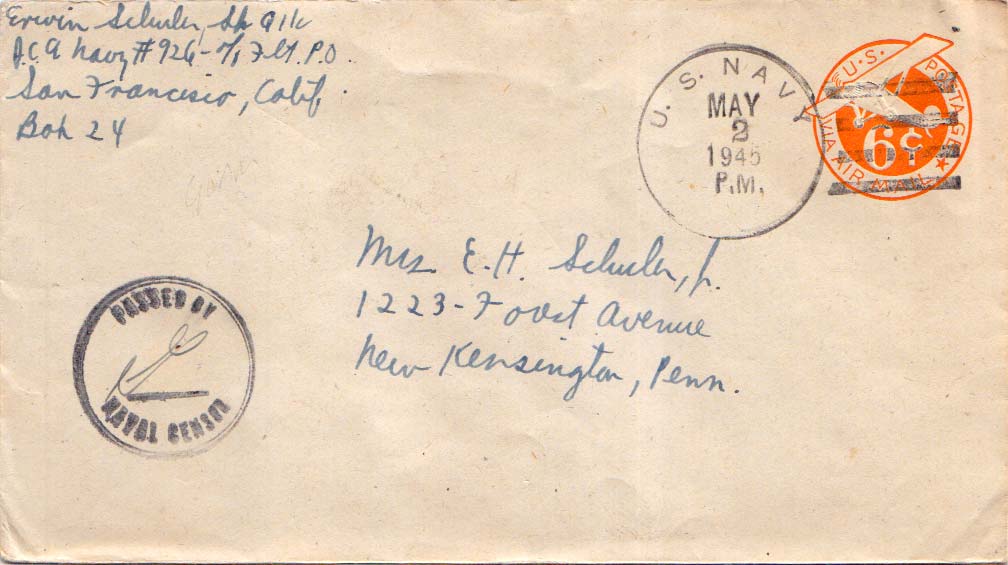 Erwin Schuler, Sk 91k
Navy #926 - Flt. P.O.
San Francisco, Calif.
Box 24
U.S. NAVY
MAY
2
1945
P.M.
U.S. POSTAGE
6¢
VIA AIR MAIL
Mrs. E.H. Schuler, Jr.
1223 - Foost Avenue
New Kensington, Penn.
PASSED BY
NAVAL CENSOR